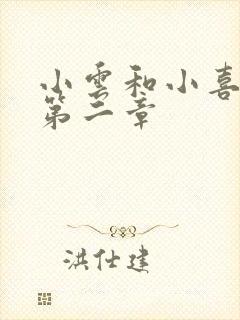 小雲和小喜
第二章
洪仕建